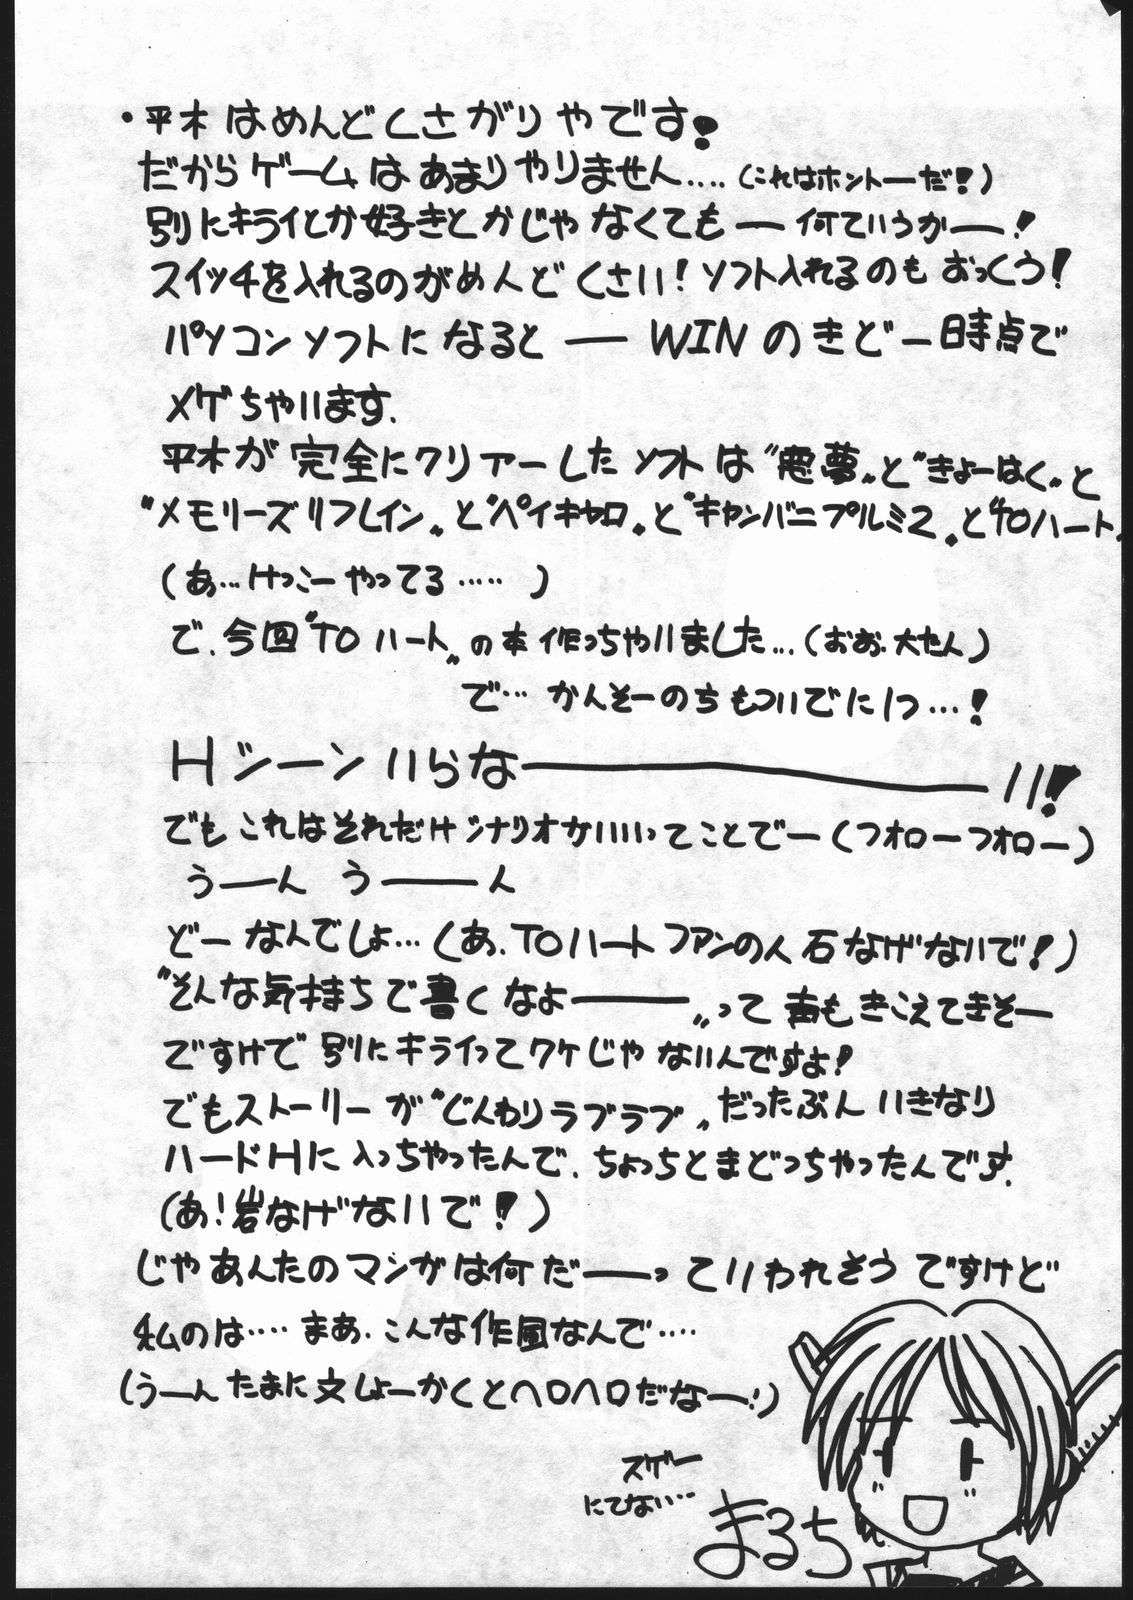 ・平木はめんどくさがりやです!
だからゲームはあまりやりません….(これはホントーだ!)
別にキライとか好きとかじゃなくてもー何ていうかー!
スイッチを入れるのがめんどくさい!ソフト入れるのもおっくう!
パソコンソフトになるとーWINのきどー時点で
メゲちゃいます.
平木が完全にクリアーしたソフトは"悪夢"と"きょーはく"と
"メモリーズリフレイン"と"ペイキャロ"と"キャンバニプルミ2"と"TOハート"
(あ…けっこーやってる……)
で、今回"TOハート"の本作っちゃいました…(おお、大たん)
で…かんそーのちもついでに1つ…!
Hシーンいらなーーーい!
でもこれはそれだけシナリオがいいってことでー(フォローフォロー)
うーん うーん
どーなんでしょ…(あ、TOハートファンの人石なげないで!)
"そんな気持ちで書くなよーー"って声もきこえてきそー
ですけで別にキライってワケじゃないんですよ!
でもストーリーが"じんわりラブラブ"だったぶんいきなり
ハードHに入っちゃったんで、ちょっととまどっちゃったんです.
(あ!岩なげないで!)
じゃあんたのマンガは何だーーっていわれそうですけど
私のは….まあ、こんな作風なんで….
(うーんたまに文しょーかくとヘロヘロだなー!)
スゲー
にてない…
まるち